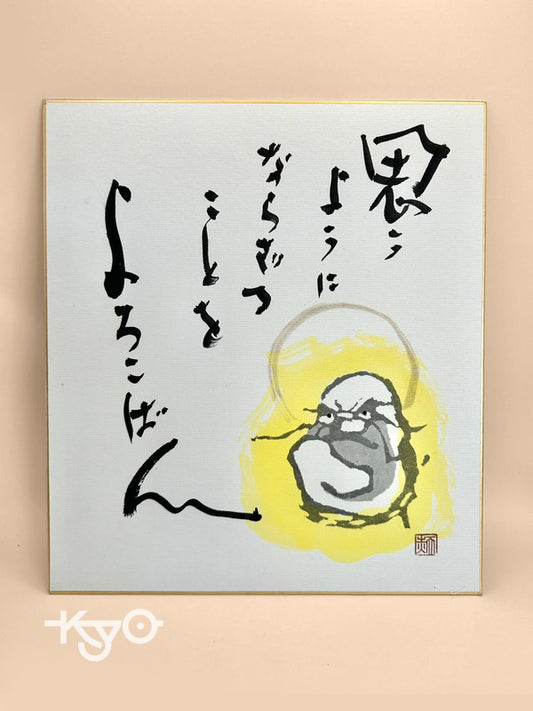 思う
ように
ならぬ
ことを
よろこばん
KyO